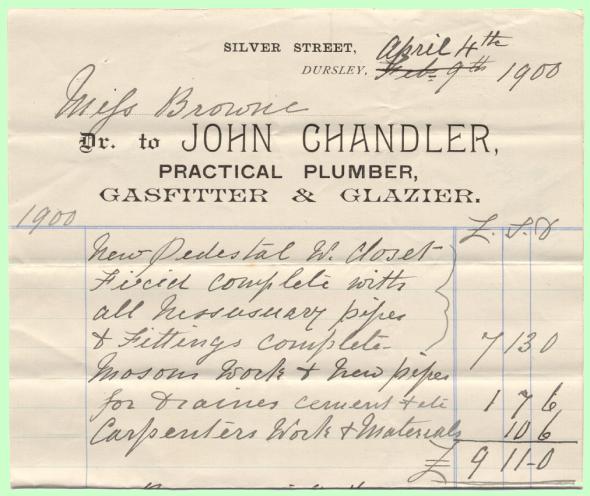 SILVER STREET,
April 4th
DURSLEY, Feb. 9th 1900
Miss Browne
Dr. to JOHN CHANDLER,
PRACTICAL PLUMBER,
GASFITTER & GLAZIER.
1900 £. S. D
New Pedestal W. Closet
Fixcid complete with
all nessusuary pipes
& Fittings complete 7 13 0
Masons Work & New pipes
for Draines cement & etc 1 7 6
Carpenters Work & Materials 10 6
£ 9 11 0